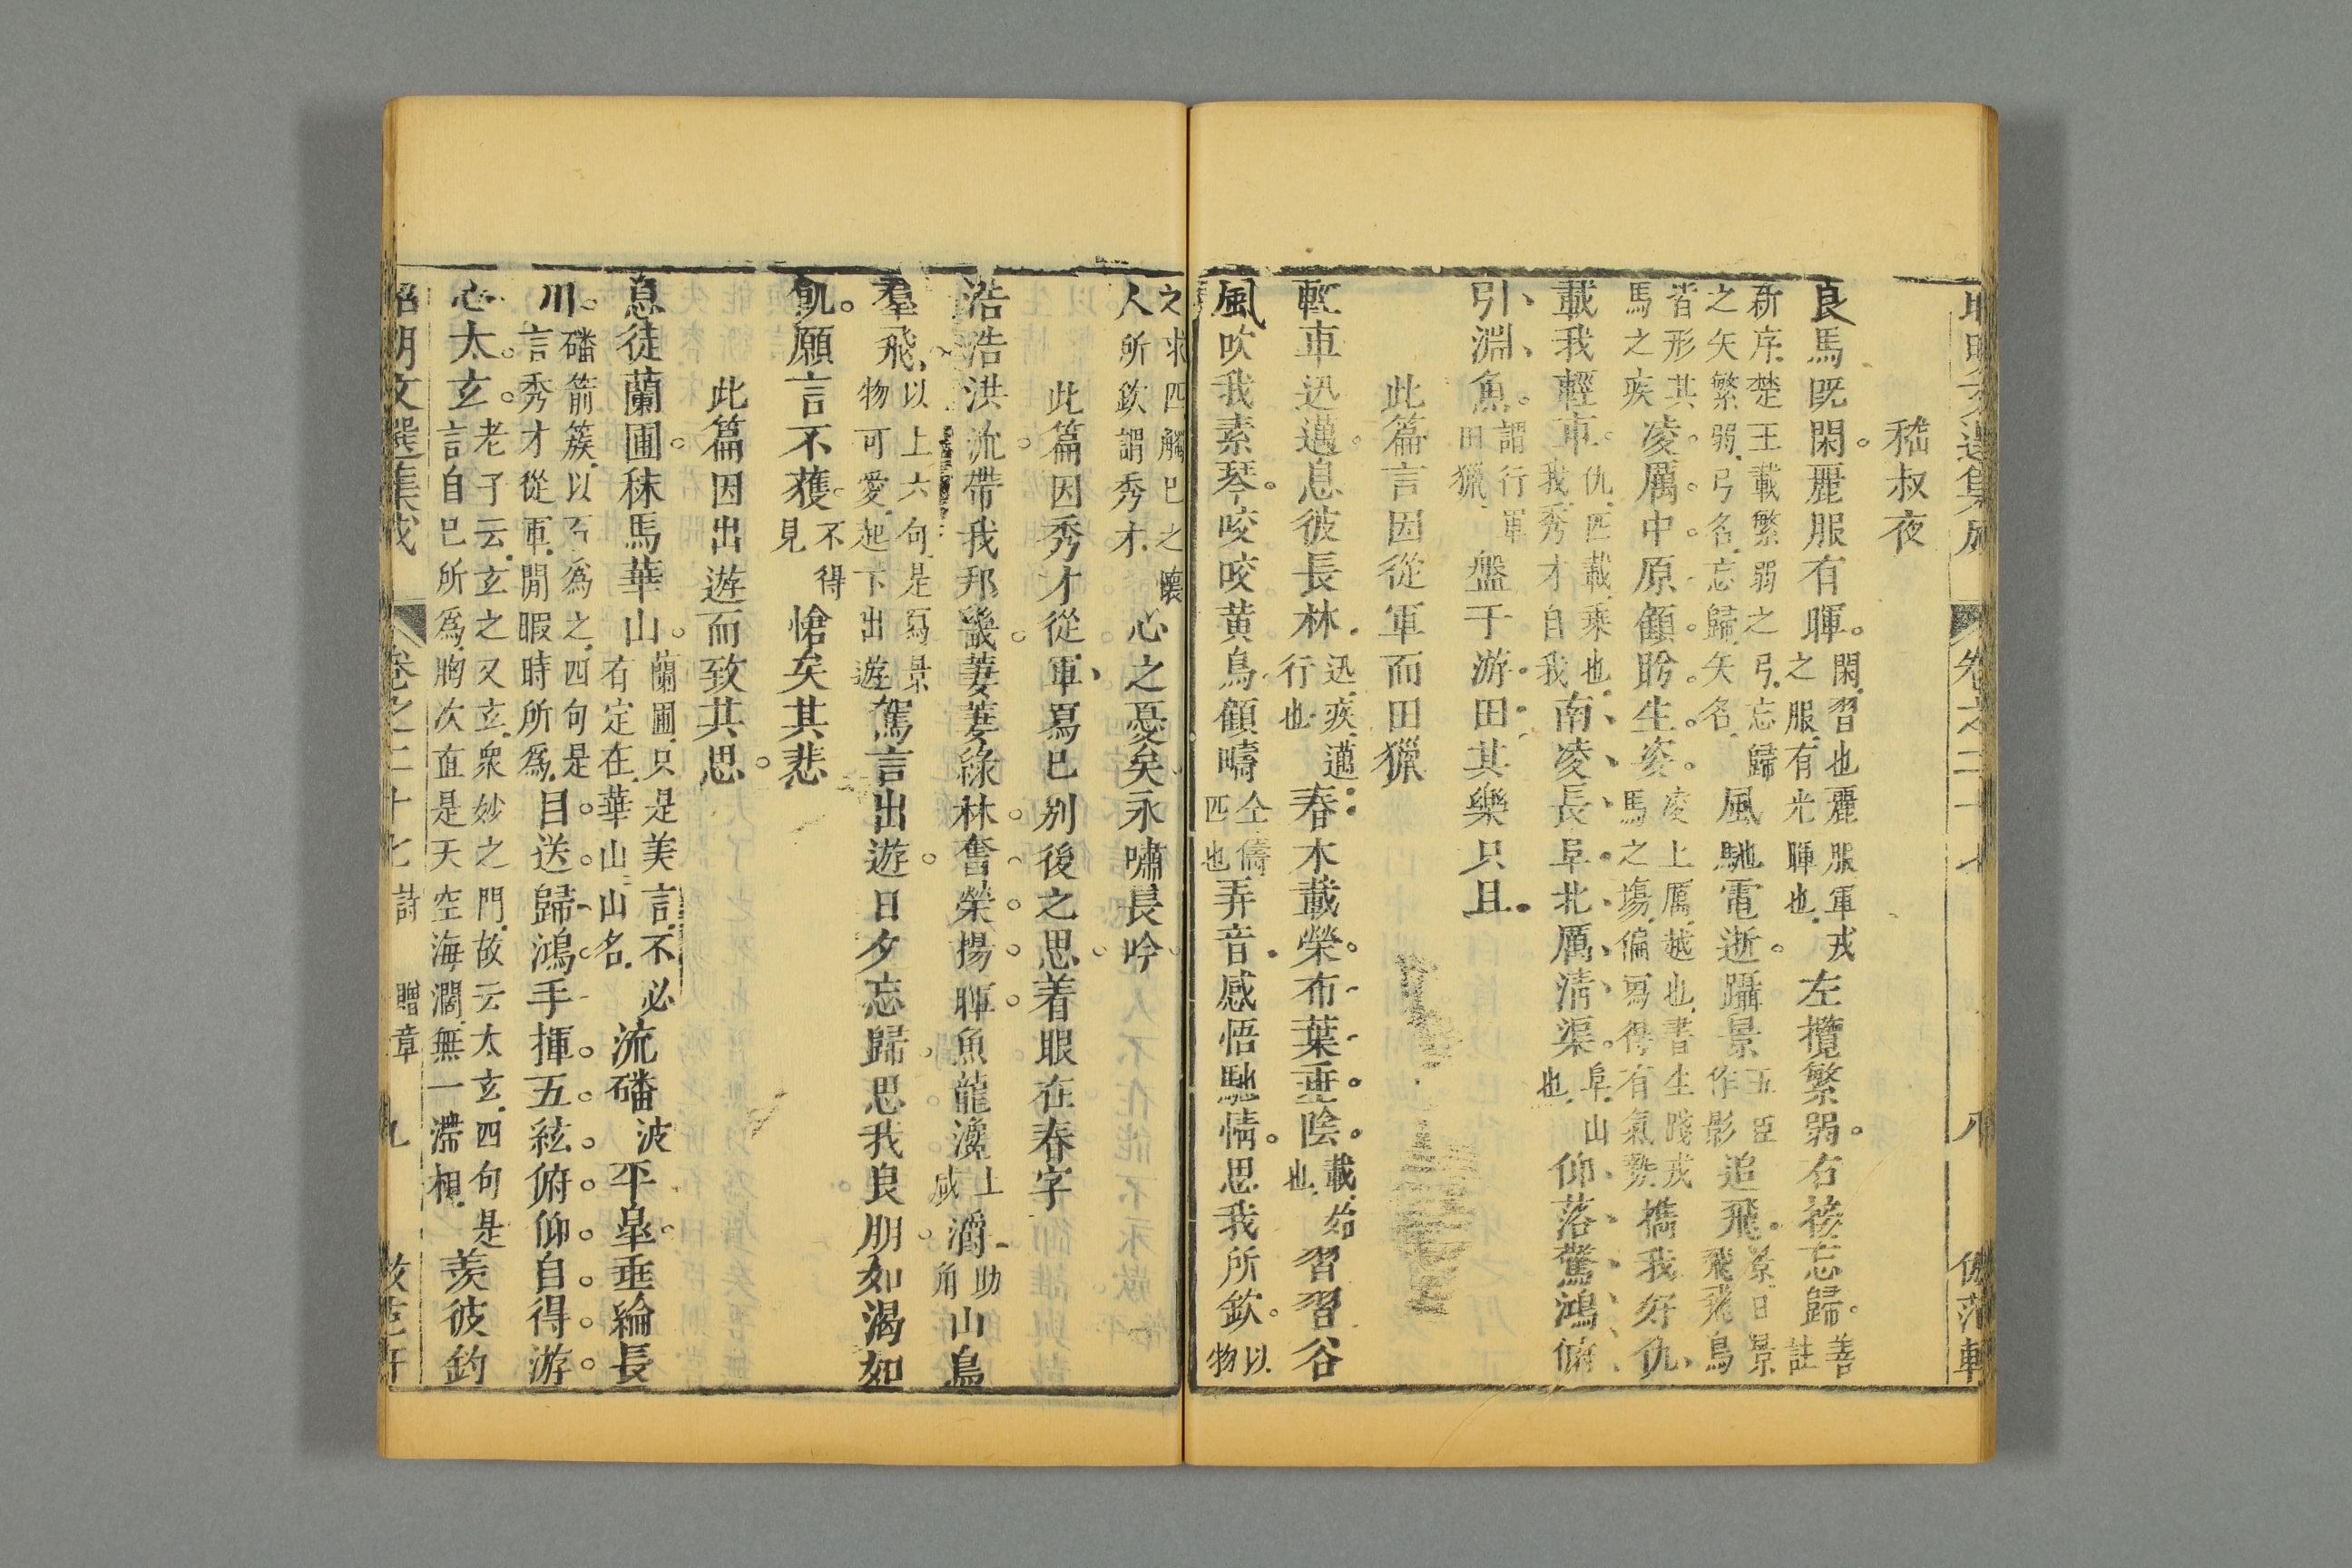 嵇叔夜
良馬既閑麗服有暉閑習也麗服軍戎之服有光暉也左攬繁弱右接忘歸善註
新序楚王載繁弱之弓忘歸之矢繁弱弓名忘歸矢名風馳電逝躡景五臣作影追飛景日景飛飛鳥
皆形其馬之疾凌厲中原顧盼生姿凌上厲越也書生踐戎馬之塲偏寫得有氣勢携我好仇
載我輕車仇匹載乘也我秀才自我南凌長阜北厲淸渠阜山也仰落驚鴻俯
引淵魚謂行軍田獵盤于游田其樂只且
此篇言因從軍而田獵
輕車迅邁息彼長林迅疾邁行也春木載榮布葉垂陰載始也習習谷
風吹我素琴咬咬黄鳥顧疇仝儔匹也弄音感悟馳情思我所欽以物
之求匹觸已之懷人所欽謂秀才心之憂矣永嘯長吟
此篇因秀才從軍寫已别後之思着眼在春字
浩浩洪流帶我邦畿萋萋綠林奮榮揚暉魚龍瀺上咸灂助角山鳥
羣飛以上六句是寫景物可愛起下出遊駕言出遊日夕忘歸思我良朋如渴如
飢願言不獲不得見愴矣其悲
此篇因出遊而致其思
息徒蘭圃秣馬華山蘭圃只是美言不必有定在華山山名流磻波平臯垂綸長
川磻箭簇以石爲之四句是言秀才從軍閒暇時所爲目送歸鴻手揮五絃俯仰自得游
心太玄老子云玄之又玄衆妙之門故云太玄四句是言自已所爲胸次直是天空海濶無一滯相羨彼釣
昭明文選集成 卷之二十七 詩 贈章 九